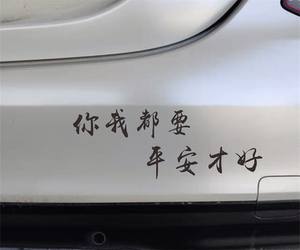 你我都要
平安才好